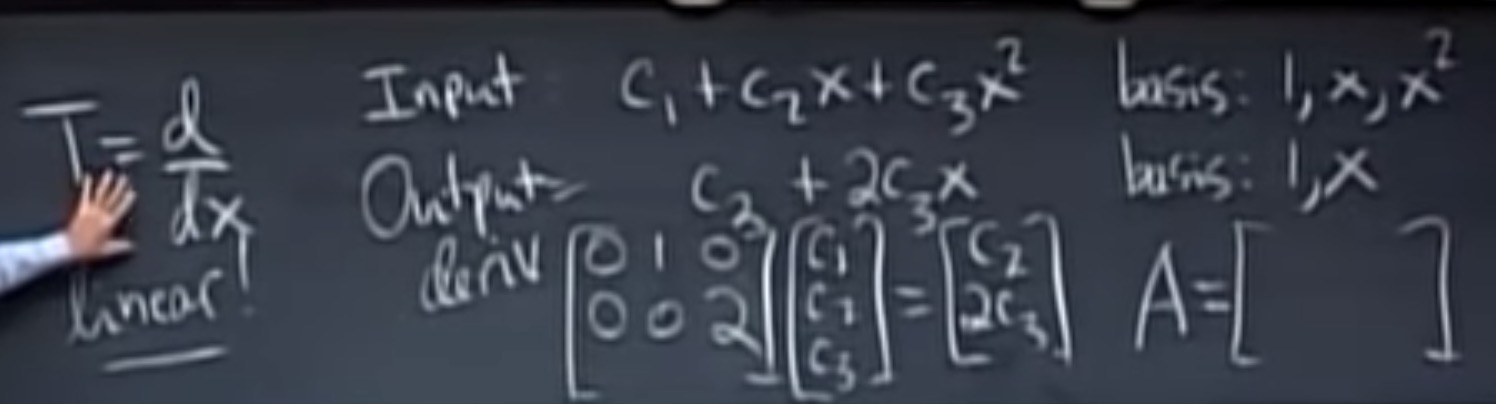 T = d/dx
linear!
Input: c₁ + c₂x + c₃x² basis: 1, x, x²
Output= c₃ + 2c₃x basis: 1, x
deriv [0 1 0; 0 0 2] [c₁; c₂; c₃] = [c₂; 2c₃] A = [ ]